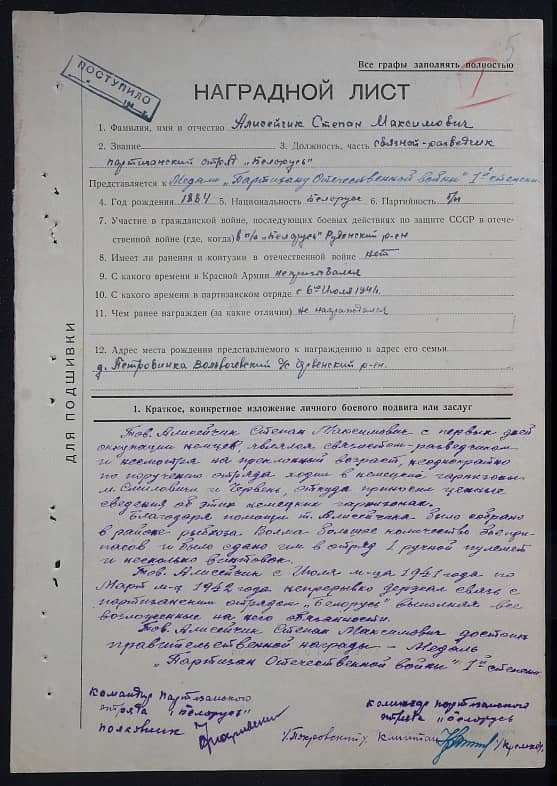 5
Все графы заполнять полностью
ПОСТУПИЛО
НАГРАДНОЙ ЛИСТ
1. Фамилия, имя и отчество Алисейчик Степан Максимович
2. Звание 3. Должность, часть связной-разведчик
партизанский отряд „Белорусь"
Представляется к Медали „Партизану Отечественной войны" 1й степени
4. Год рождения 1884 5. Национальность белорус 6. Партийность б/п
7. Участие в гражданской войне, последующих боевых действиях по защите СССР и отече-
ственной войне (где, когда) в п/о „Белорусь" Руденский р-он
8. Имеет ли ранения и контузии в отечественной войне нет
9. С какого времени в Красной Армии не призывался
10. С какого времени в партизанском отряде с 6го Июля 1941г.
11. Чем ранее награжден (за какие отличия) не награждался
12. Адрес места рождения представляемого к награждению и адрес его семьи
д. Петровинка с/с Червенский р-он.
ДЛЯ ПОДШИВКИ
1. Краткое, конкретное изложение личного боевого подвига или заслуг
Тов. Алисейчик Степан Максимович с первых дней
оккупации немцев, являлся связистом-разведчиком
и несмотря на преклонный возраст, неоднократно
по поручению отряда ходил в немецкий гарнизоны
м. Смиловичи и Червень, откуда приносил ценные
сведения об этих немецких гарнизонах.
Благодаря помощи т. Алисейчика было собрано
в районе рыбхоза Волма большое количество боепри-
пасов и было сдано им в отряд 1 ручной пулемет
и несколько винтовок.
Тов. Алисейчик с Июля м-ца 1941 года по
Март м-ц 1942 года непрерывно держал связь с
партизанским отрядом „Белорусь" выполняя все
возложенные на него обязанности.
Тов. Алисейчик Степан Максимович достоин
правительственной награды – Медаль
„Партизан Отечественной войны" 1й степени.
Командир партизанского
отряда „Белорусь"
полковник
/Покровский/
комиссар партизанского
отряда „Белорусь
капитан